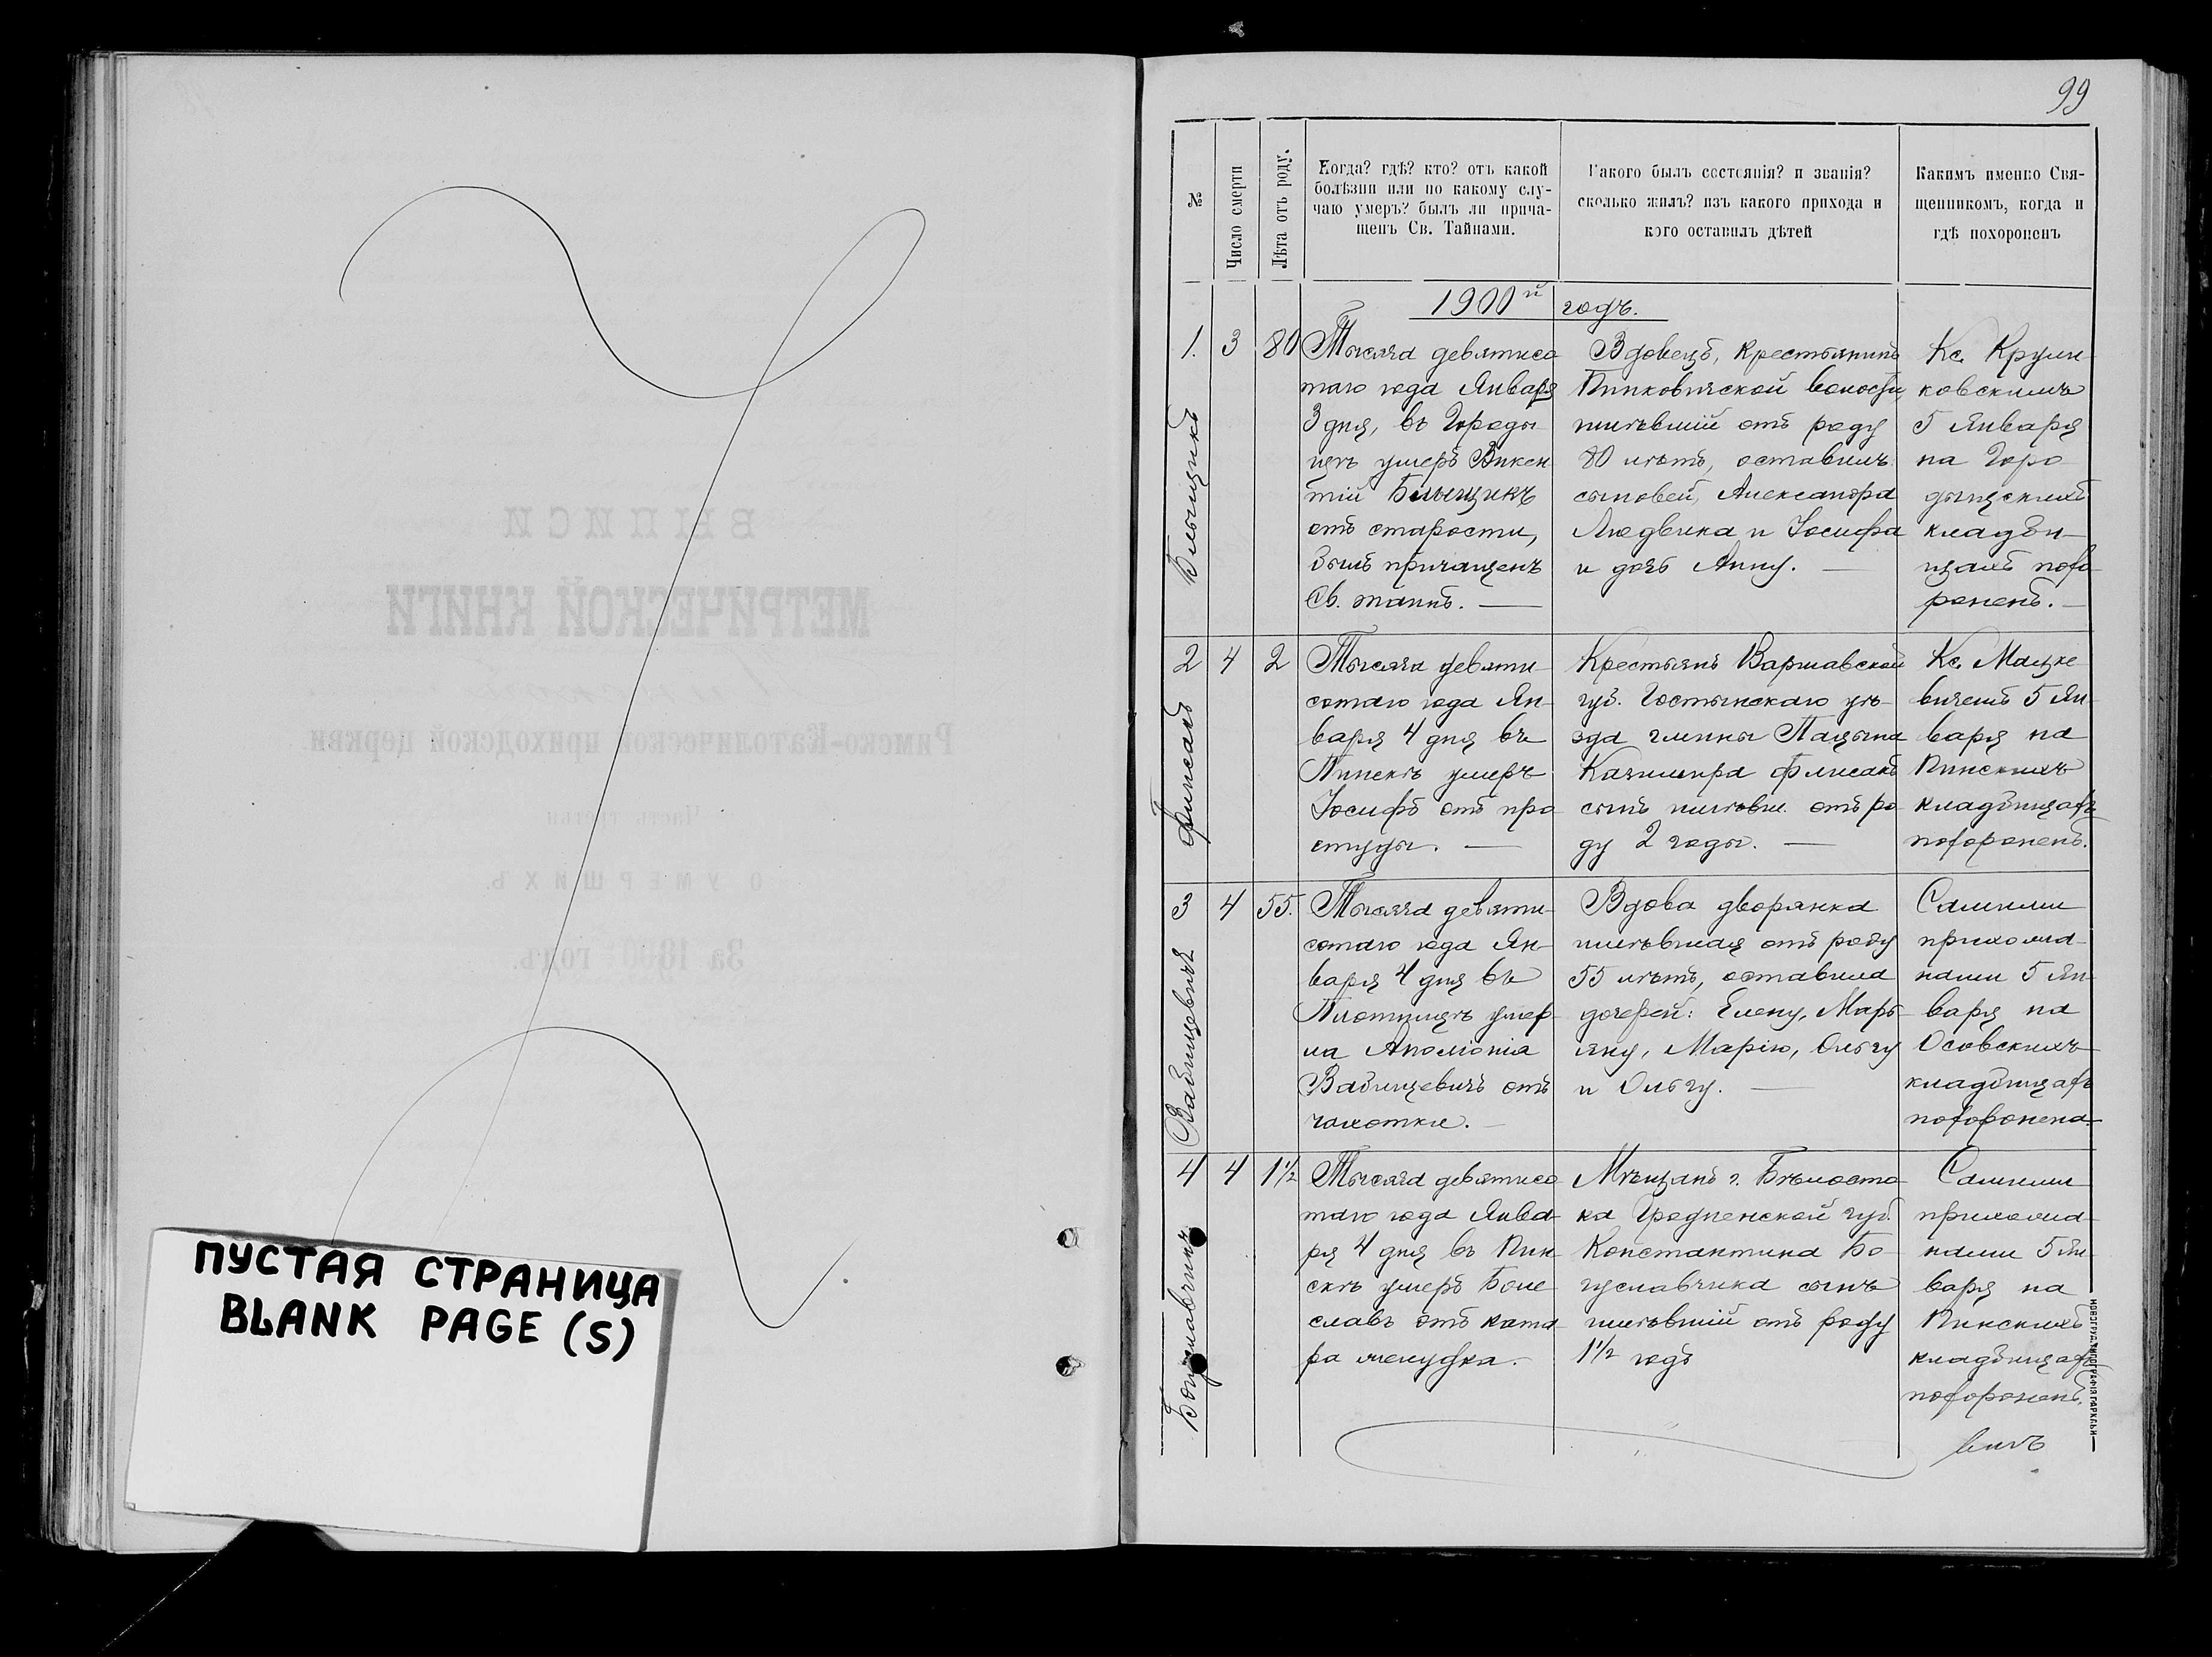 ПУСТАЯ СТРАНИЦА
BLANK PAGE (S)
99
№
Число смерти
Лѣта отъ роду.
Когда? гдѣ? кто? отъ какой
болѣзни или по какому слу-
чаю умеръ? былъ ли прича-
щенъ Св. Тайнами.
Какого былъ состоянія? и званія?
сколько жилъ? изъ какого прихода и
кого оставилъ дѣтей
Какимъ именно Свя-
щенникомъ, когда и
гдѣ похороненъ
1900й годъ.
1. 3 80
Тысяча девятисо
таго года Января
3 дня, въ Городы
щѣ умеръ Викен
тій
отъ старости,
былъ причащенъ
Св. таинъ.
Вдовецъ, крестьянинъ
Пинковичской волости,
имѣвшій отъ роду
80 лѣтъ, оставилъ
сыновей, Александра
Людвика и Іосифа
и дочь Анну.
Кс. Крули
ковскимъ
5 Января
на Горо
дыщскихъ
кладби-
щахъ похо-
роненъ.
2 4 2
Флисакъ
Тысяча девяти-
сотаго года Ян-
варя 4 дня въ
Пинскѣ умеръ
Іосифъ отъ про
студы.
Крестьянъ Варшавской
губ. Гостынскаго уѣ-
зда гмины Пацына
Казимира Флисакъ
сынъ имѣвш. отъ ро
ду 2 годы.
Кс. Мацке
вичемъ 5 Ян-
варя на
Пинскихъ
кладбищахъ
похороненъ.
3 4 55.
Вабищевичъ
Тысяча девяти-
сотаго года Ян-
варя 4 дня въ
Плотницѣ умер-
ла Аполіонія
Вабищевичъ отъ
чахотки.
Вдова дворянка
имѣвшая отъ роду
55 лѣтъ, оставила
дочерей: Елену, Марь-
яну, Марію, Ольгу
и Ольгу.
Самими
прихожа-
нами 5 Ян-
варя на
Осовскихъ
кладбищахъ
похоронена.
4 4 1½
Богуславчикъ
Тысяча девятисо
таго года Янва-
ря 4 дня въ Пин-
скѣ умеръ Боле
славъ отъ ката-
ра желудка.
Мѣщанъ г. Бѣлосто-
ка Гродненской губ.
Константина Бо-
гуславчика сынъ
имѣвшій отъ роду
1½ годъ
Самими
прихожа-
нами 5 Ян-
варя на
Пинскихъ
кладбищахъ
похороненъ.